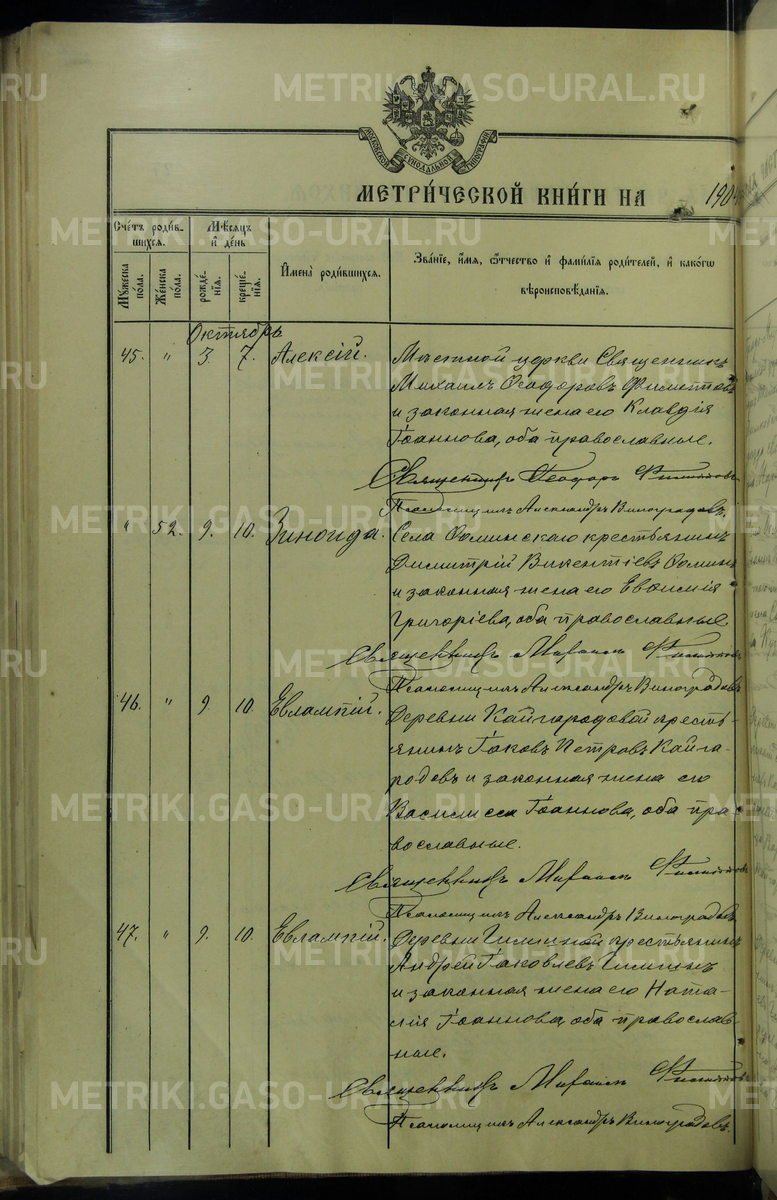 МОСКОВСКОЙ СѶНОДАЛЬНОЙ ТИПОГРАФІИ
МЕТРИ́ЧЕСКОЙ КНИ́ГИ НА 1904
Сче́тъ роди́в-
шихся.
Мѣ́сяцъ
и҆ де́нь
Мꙋ́жеска
по́ла.
Же́нска
по́ла.
рожде́-
нїѧ.
креще́-
нїѧ.
И҆мена̀ роди́вшихсѧ.
Зва́нїе, и҆́мѧ, ѻ҆́тчество и҆ фами́лїѧ роди́телей, и҆ како́гѡ
вѣроисповѣ́данїѧ.
Октябрь
45. " 3. 7. Алексій. Мѣстной церкви Священникъ
Михаилъ Ѳеодоровъ
и законная жена его Клавдія
Іоаннова, оба православные.
Священникъ Ѳеодоръ
Псаломщикъ Александръ Виноградовъ.
" 52. 9. 10. Зиноида. Села Ѳоминскаго крестьянинъ
Димитрій Викентіевъ Ѳоминъ
и законная жена его Евѳимія
Григоріева, оба православные.
Священникъ Михаилъ
Псаломщикъ Александръ Виноградовъ
46. " 9. 10. Евлампій. Деревни Кайгородовой кресть-
янинъ Іаковъ Петровъ Кайго-
родовъ и законная жена его
Василисса Іоаннова, оба пра-
вославные.
Священникъ Михаилъ
Псаломщикъ Александръ Виноградовъ
47. " 9. 10. Евлампій. Деревни Гилиной крестьянинъ
Андрей Іаковлевъ Гилинъ
и законная жена его Ната-
лія Іоаннова, оба православ-
ные.
Священникъ Михаилъ
Псаломщикъ Александръ Виноградовъ.
METRIKI.GASO-URAL.RU